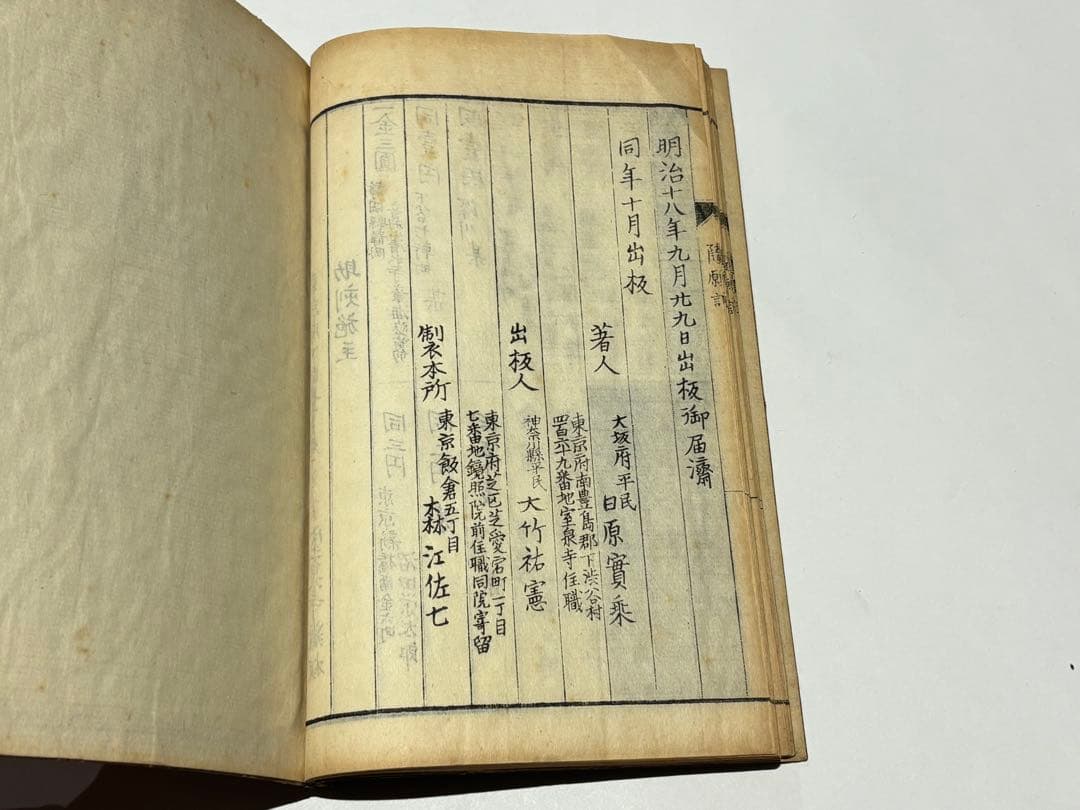 明治十八年九月廿九日出板御届濟
同年十月出板
著人
大坂府平民
日原實乗
東京府南豊島郡下渋谷村
四百六十九番地室泉寺住職
出板人
神奈川縣平民
大竹祐憲
東京府芝区芝愛宕町一丁目
七番地鏡照院前住職同院寄留
製本所
東京飯倉五丁目
森江佐七